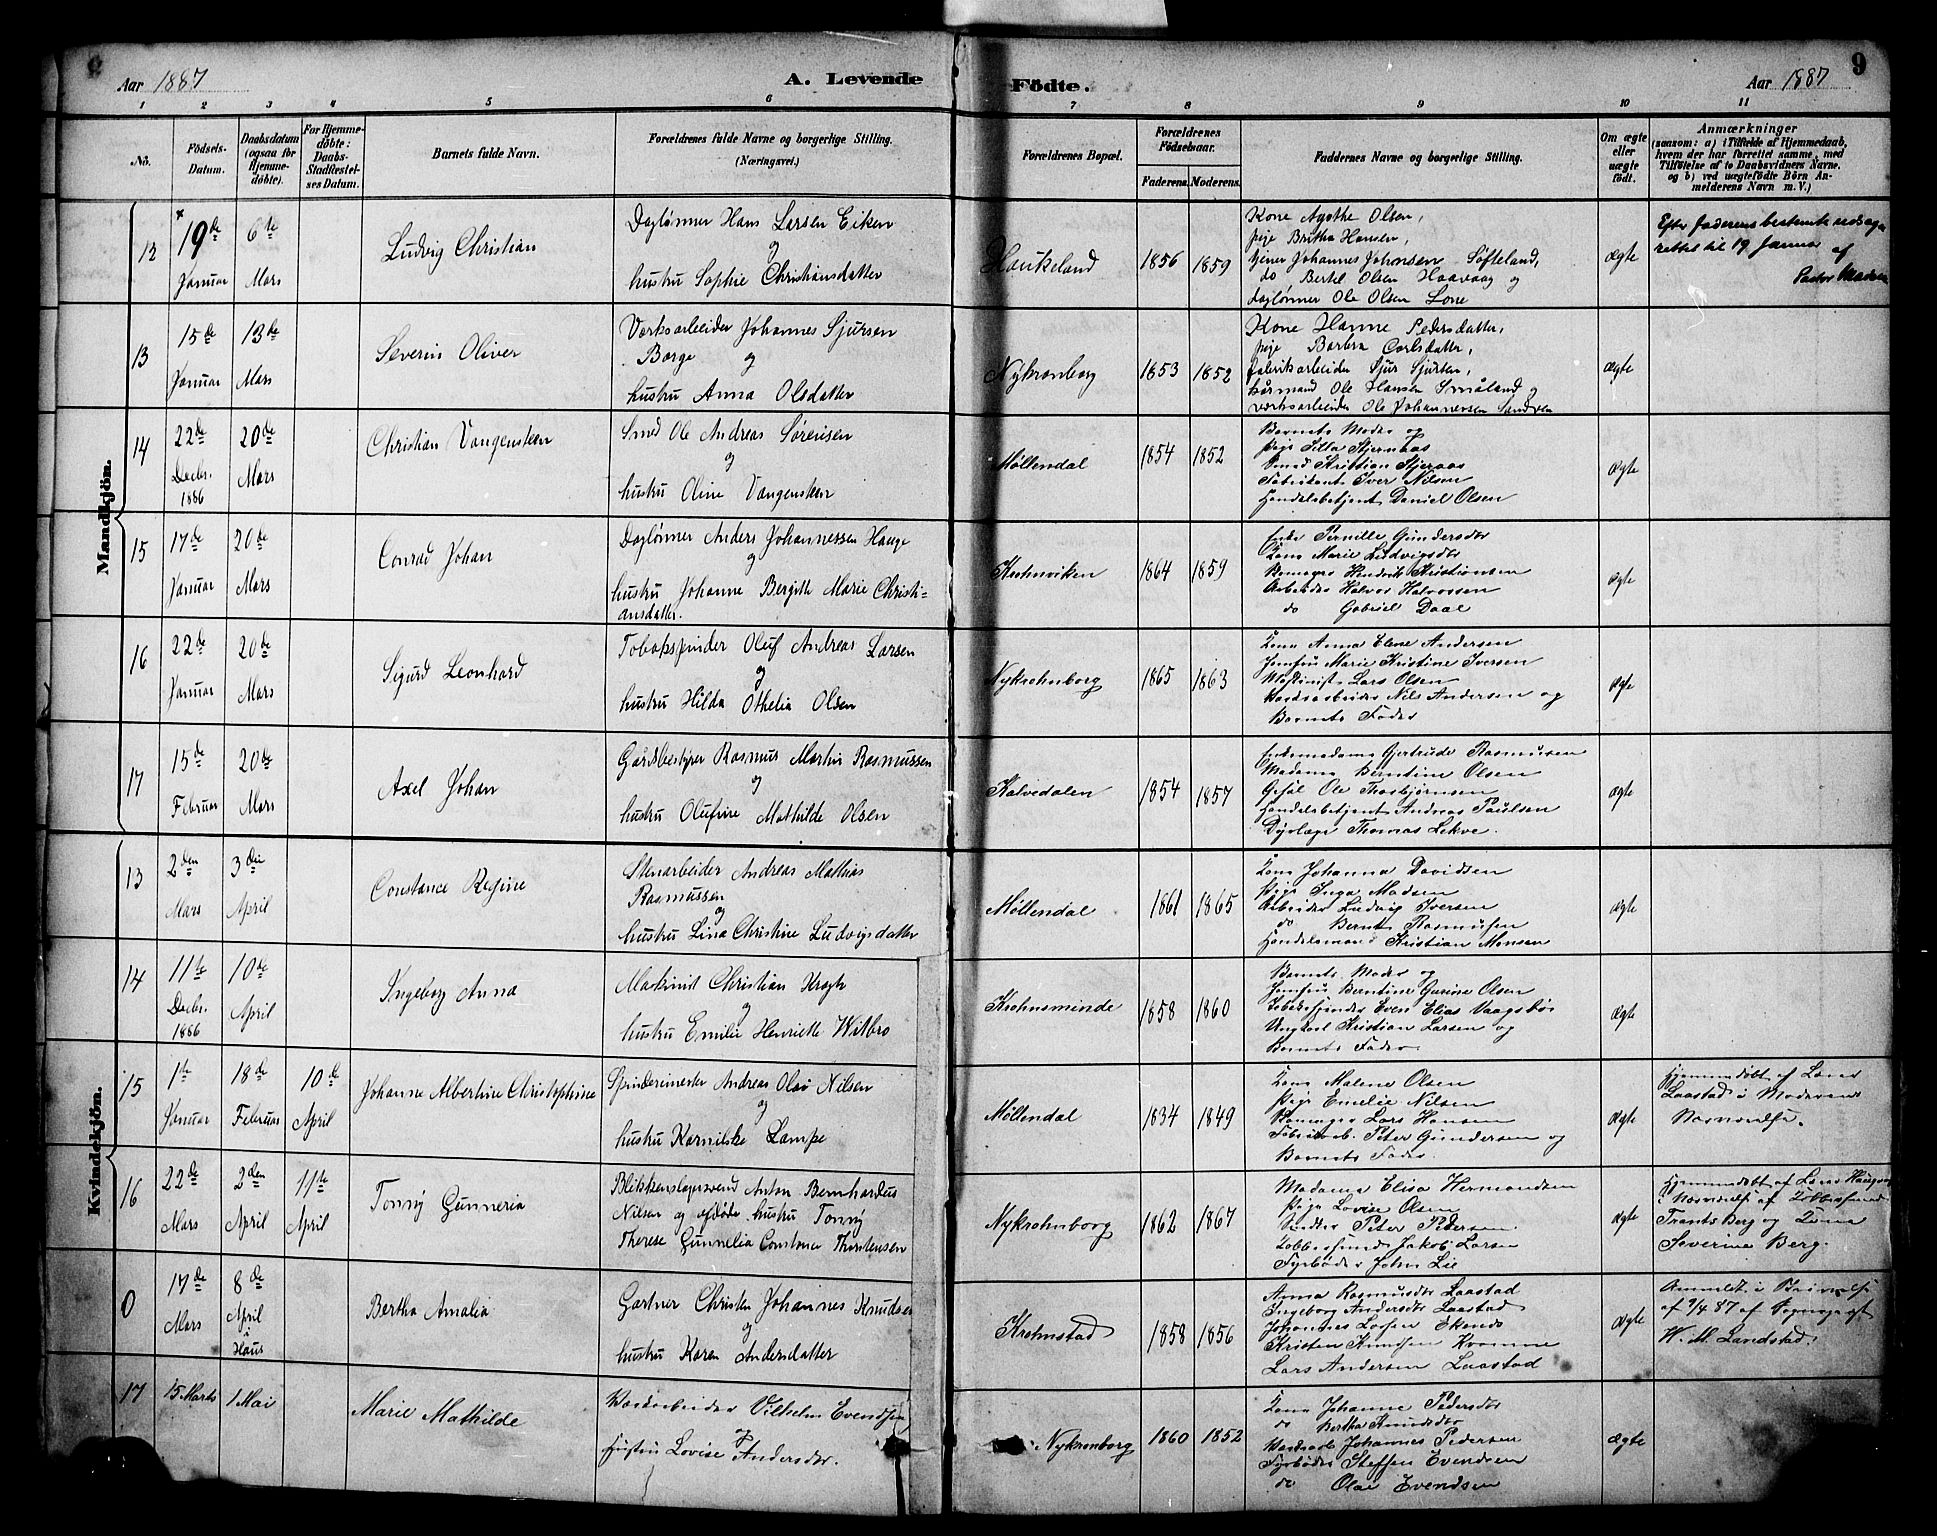 Aar 1887
A. Levende Födte.
Aar 1887
9
1 2 3 4 5 6 7 8 9 10 11
No.
Födsels-
Datum.
Daabsdatum
(ogsaa for
Hjemme-
döbte).
For Hjemme-
döbte:
Daabs-
Stadfæstel-
ses Datum.
Barnets fulde Navn.
Forældrenes fulde Navne og borgerlige Stilling.
(Næringsvei.)
Forældrenes Bopæl.
Forældrenes
Födselsaar.
Faderens. Moderens.
Faddernes Navne og borgerlige Stilling.
Om ægte
eller
uægte
födt.
Anmærkninger
(saasom: a) i Tilfælde af Hjemmedaab,
hvem der har forrettet samme, med
Tilföielse af to Daabsvidners Navne.
og b) ved uægtefödte Börn An-
melderens Navn m. V.)
Mandkjön.
12
19de
Januar
6te
Mars
Ludvig Christian
Daglønner Hans Larsen Eiken
og
hustru Sophie Christiansdatter
Haukeland
1856 1859
Kone Agathe Olsen,
pige Britha Hansen,
tjener Johannes Johnsen Søfteland,
do Bertel Olsen Haavaag og
daglønner Ole Olsen Lone
ægte
Efter faderens bestemte udsagn
rettet til 19 Januar af
Pastor Madsen
13
15de
Januar
13de
Mars
Severin Oliver
Værksarbeider Johannes Sjursen
Borge og
hustru Anna Olsdatter
Nykronborg
1853 1852
Kone Hanne Pedersdatter,
pige Barbra Carlsdatter,
fabrikarbeider Sjur Sjursen,
kårmand Ole Hansen Småland og
værksarbeider Ole Johannessen Sandven
ægte
14
22de
Decbr.
1886
20de
Mars
Christian Vangensteen
Smed Ole Andreas Sørensen
og
hustru Oline Vangensteen
Møllendal
1854 1852
Barnets Moder og
Smed Kristian
Fabrikant Iver Nilsen
Handelsbetjent Daniel Olsen
ægte
15
17de
Januar
20de
Mars
Conrad Johan
Daglønner Anders Johannessen Hauge
og
hustru Johanne Bergitte Marie Christi-
ansdatter.
Krohnviken
1864 1859
Enke Pernille Gundersdtr
Kone Marie Ludvigsdtr
Bømager Hendrik Kristiansen
Arbeider Halvor Halvorsen
do Gabriel Daae
ægte
16
22de
Januar
20de
Mars
Sigurd Leonhard
Tobakspinder Oluf Andreas Larsen
og
hustru Hilda Othelia Olsen
Nykrohnborg
1865 1863
Kone Anna Elene Andersen
Jomfru Marie Kristine Iversen
Maskinist Lars Olsen
Værksarbeider Nils Andersen og
Barnets Fader
ægte
17
15de
Februar
20de
Mars
Axel Johan
Gårdsbestyrer Rasmus Martin Rasmussen
og
hustru Olufine Mathilde Olsen
Kalvedalen
1854 1857
Enkemadame Gjertrude Rasmusen
Madame Berntine Olsen
Ole Thorbjørnsen
Handelsbetjent Andreas Paulsen
Dyrlæge Thomas Lekve.
ægte
Kvindekjön.
13
2den
Mars
3die
April
Constance Regine
Stenarbeider Andreas Mathias
Rasmussen
og
hustru Lina Christine Ludvigsdatter
Møllendal
1861 1865
Kone Johanna Davidsen
Pige Inga Madsen
Arbeider Ludvig Iversen
do Bernt Rasmusen
Handelsmand Kristian Monsen
ægte
14
11te
Decbr.
1886
10de
April
Ingeborg Anna
Maskinist Christian Krogh
og
hustru Emilie Henriette Witbro
Krohnsminde
1858 1860
Barnets Moder og
Jomfru Berntine Gurine Olsen
Tobakspinder Even Elias Vaagsbø
Ungkarl Kristian Larsen og
Barnets Fader.
ægte
15
1ste
Januar
18de
Februar
10de
April
Johanne Albertine Christophine
Spinderimester Andreas Olai Nilsen
og
hustru Kornilske Lampe
Møllendal
1834 1849
Kone Malene Olsen
Pige Emelie Nilsen
Lars Hansen
Fabrikarb. Peter Gundersen og
Barnets Fader.
ægte
Hjemmedøbt af Lærer
Laastad i Moderens
Nærværelse.
16
22de
Mars
2den
April
11te
April
Tonny Gunneria
Blikkenslagersvend Anton Bernhardus
Nilsen og afdøde hustru Tonny
Therese Gunnelia Constance Thorstensen
Nykrohnborg
1862 1867
Madame Elisa Hermandsen
Pige Lovise Olsen
Snedker Peter Pedersen
Kobbersmed Jakob Larsen
Fyrbøder John Lie
ægte
Hjemmedøbt af Lærer
i Nærværelse af Kobbersmed
Frants Berg og Kone
Severine Berg.
0
17de
Mars
8de
April
i
Haus
Bertha Amalia
Gartner Christen Johannes Knudsen
og
hustru Karen Andersdatter
Krohnstad
1858 1856
Anna Rasmusdtr Laastad
Ingeborg Andersdtr Laastad
Johannes Larsen
Kristen Knudsen Kvamme
Lars Andersen Laastad
ægte
Anmeldt i Skrivelse
af 9/4 87 af Sogneprest
W. M. Landstad.
17
15 Marts
1 Mai
Marie Mathilde
Værksarbeider Vilhelm Evendsen
og
hustru Lovise Andersdtr.
Nykronborg
1860 1852
Kone Johanne Pedersdtr
do Bertha Knudsdtr
Værksarb Johannes Pedersen
Fyrbøder Steffen Evendsen
do Olai Evendsen
ægte